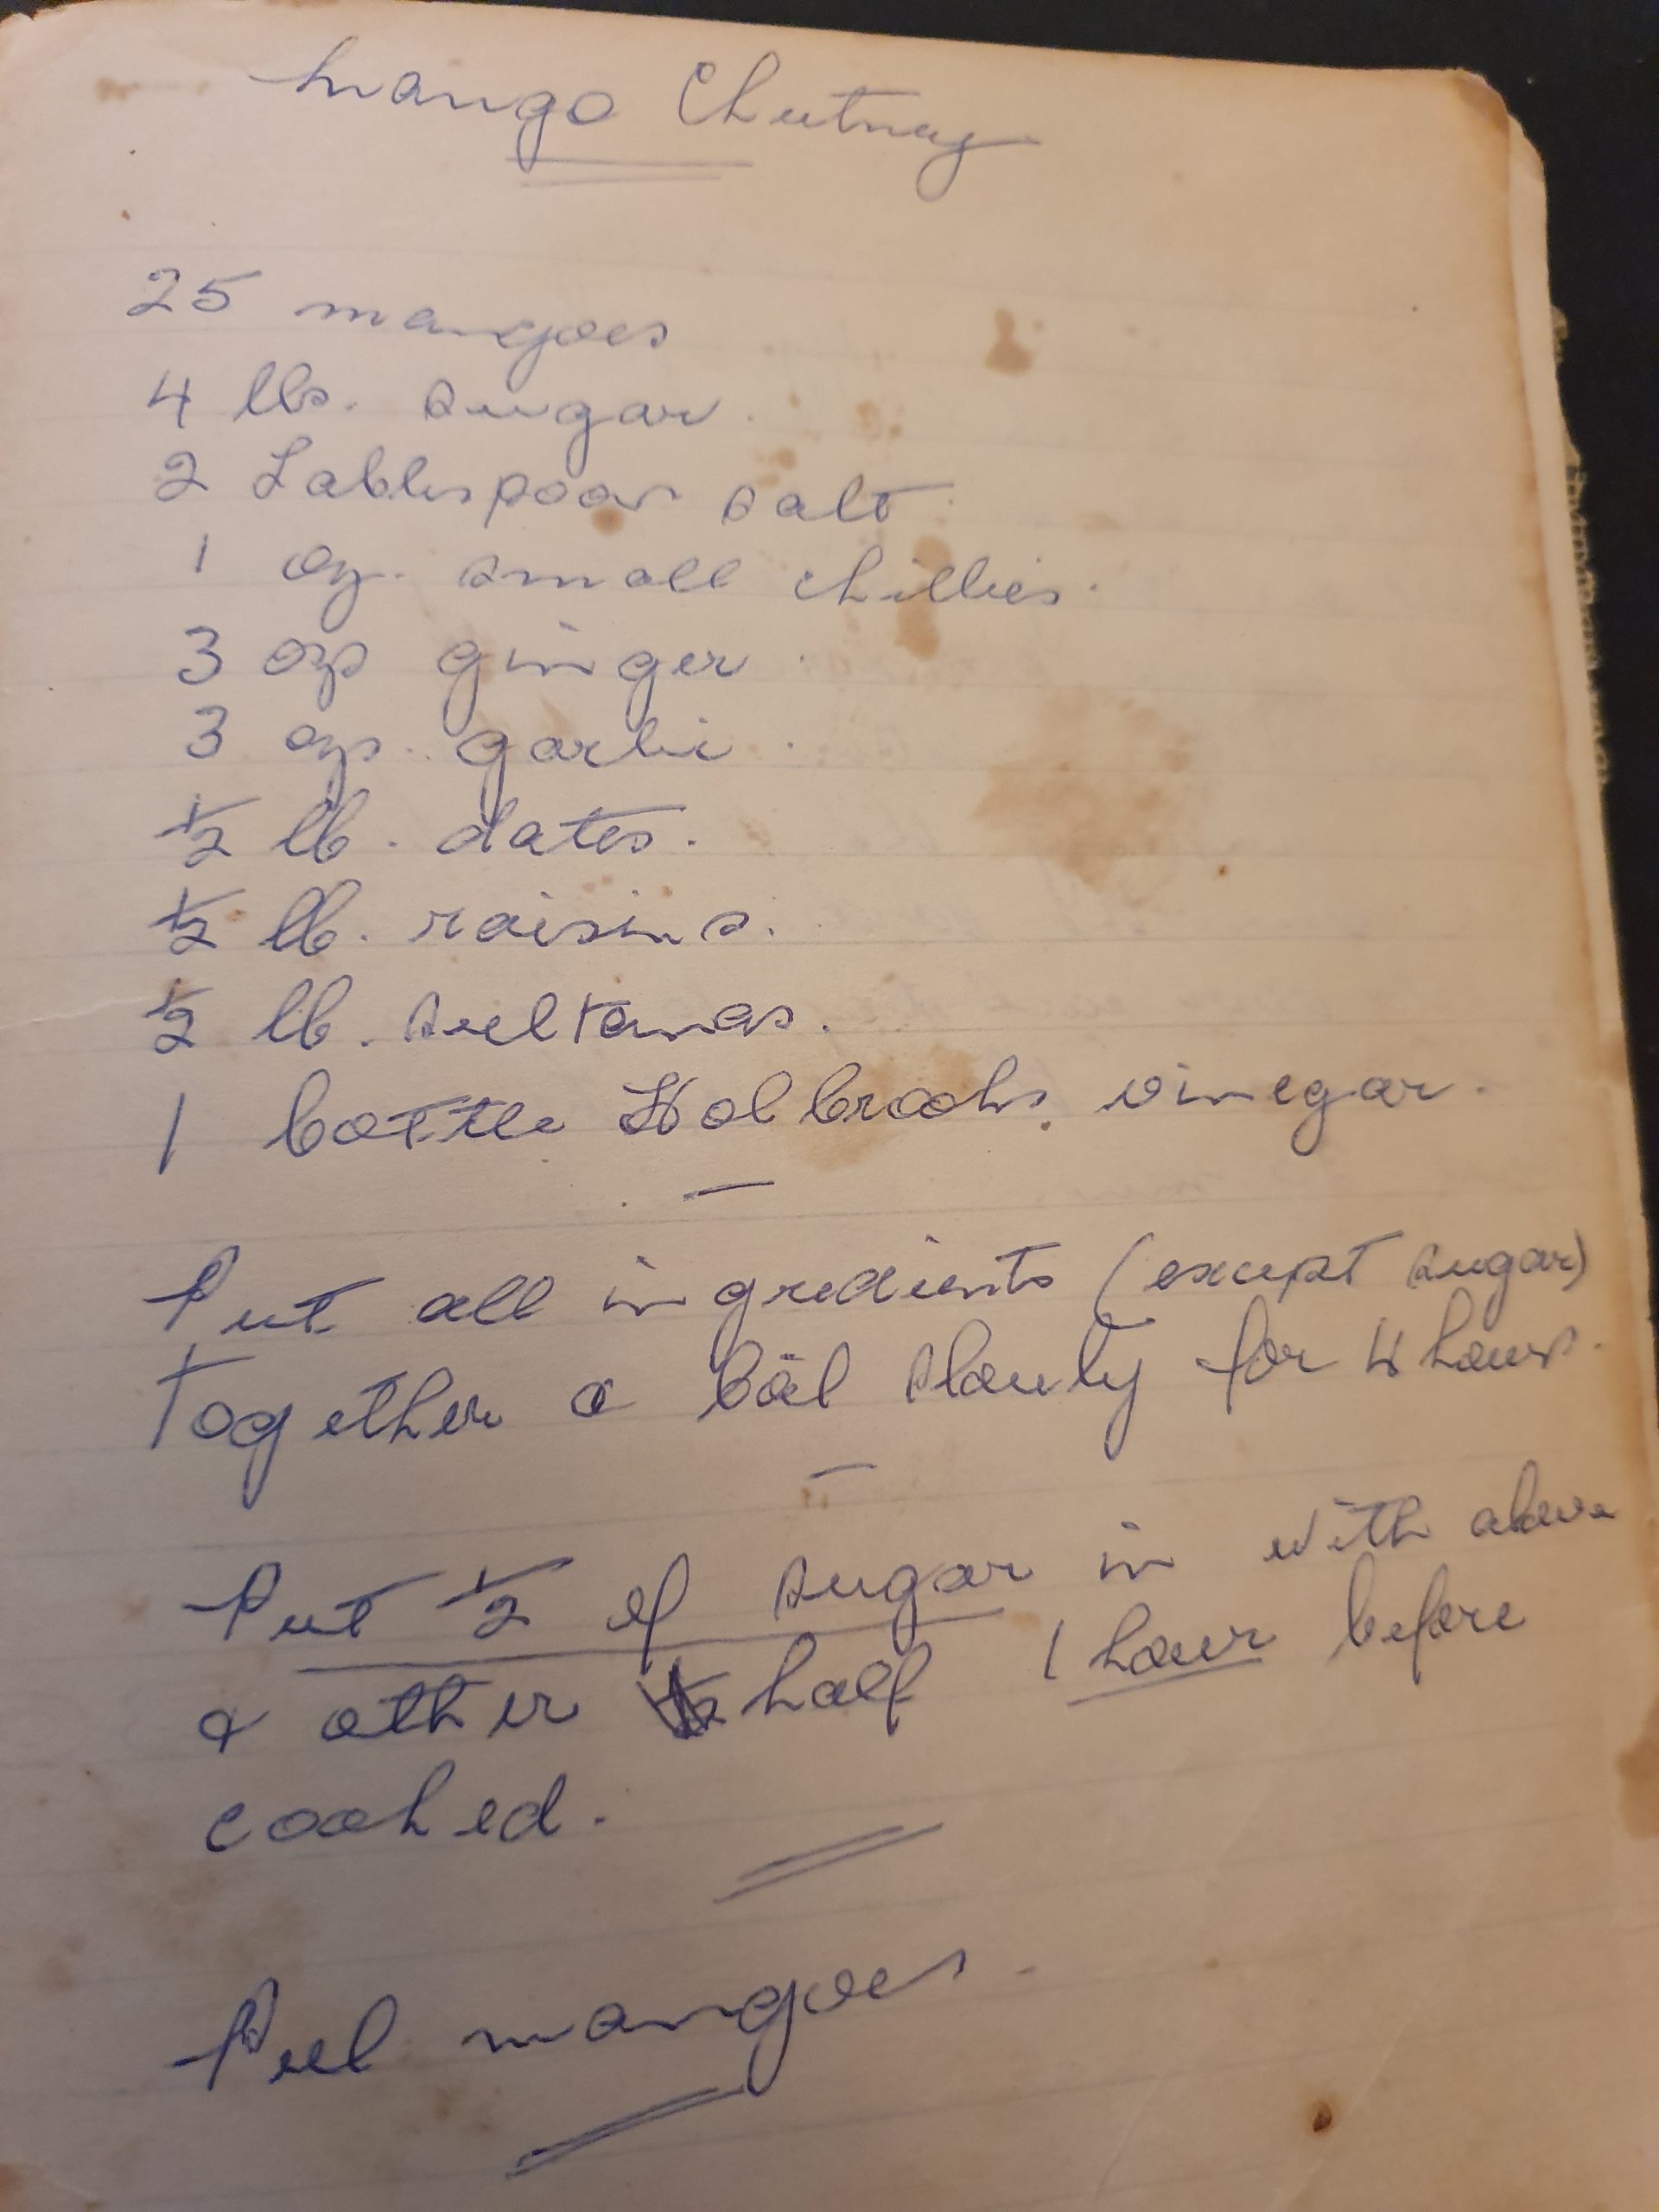 Mango Chutney
25 mangoes
4 lbs. sugar.
2 Tablespoon salt.
1 oz. small chillies.
3 ozs ginger.
3 ozs. garlic.
1/2 lb. dates.
1/2 lb. raisins.
1/2 lb. sultanas.
1 bottle Holbrooks vinegar.
Put all ingredients (except sugar)
together & boil slowly for 4 hours.
Put 1/2 of sugar in with above
& other half 1 hour before
cooked.
Peel mangoes.